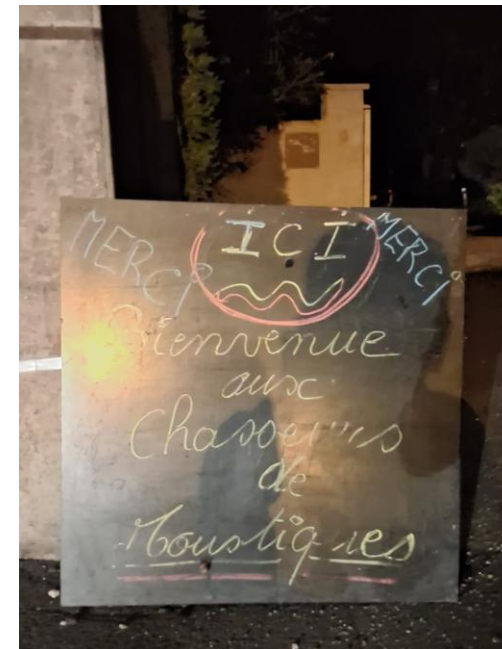 MERCI ICI MERCI
Bienvenue
aux
Chasseurs
de
Moustiques